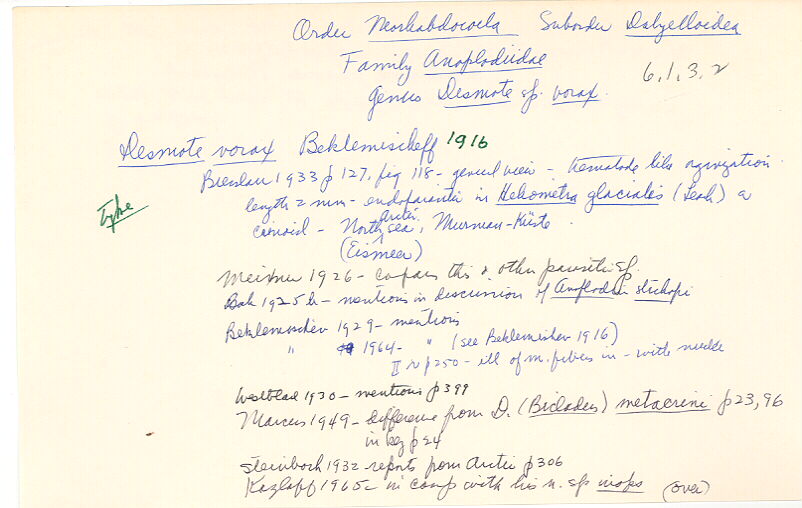 Order Neorhabdocoela Suborder Dalyelloidea
Family Anoplodiidae
6,1,3,2
Genus Desmote sp. vorax.
Desmote vorax Beklemischeff 1916
Bresslau 1933 p 127, fig 118 - general view - trematode like organization
Type
length 2 mm - endoparasitic in Heliometra glacialis (Leach) a
crinoid - North Arctic sea, Murman-Küste
(Eismeer)
Meixner 1926 - compares this & other parasitic sp.
Bock 1925 b - mentions in discussion of Anoplodium stichopi
Beklemischev 1929 - mentions
" 1964 - " (see Beklemishev 1916)
II p250 - ill of m. fibers in - with nuclei
Westblad 1930 - mentions p 399
Marcus 1949 - difference from D. (Bicladus) metacrini p 23, 96
in key p 24
Steinbock 1932 - reports from Arctic p 306
Kozloff 1965 - in comp with his n. sp inops (over)